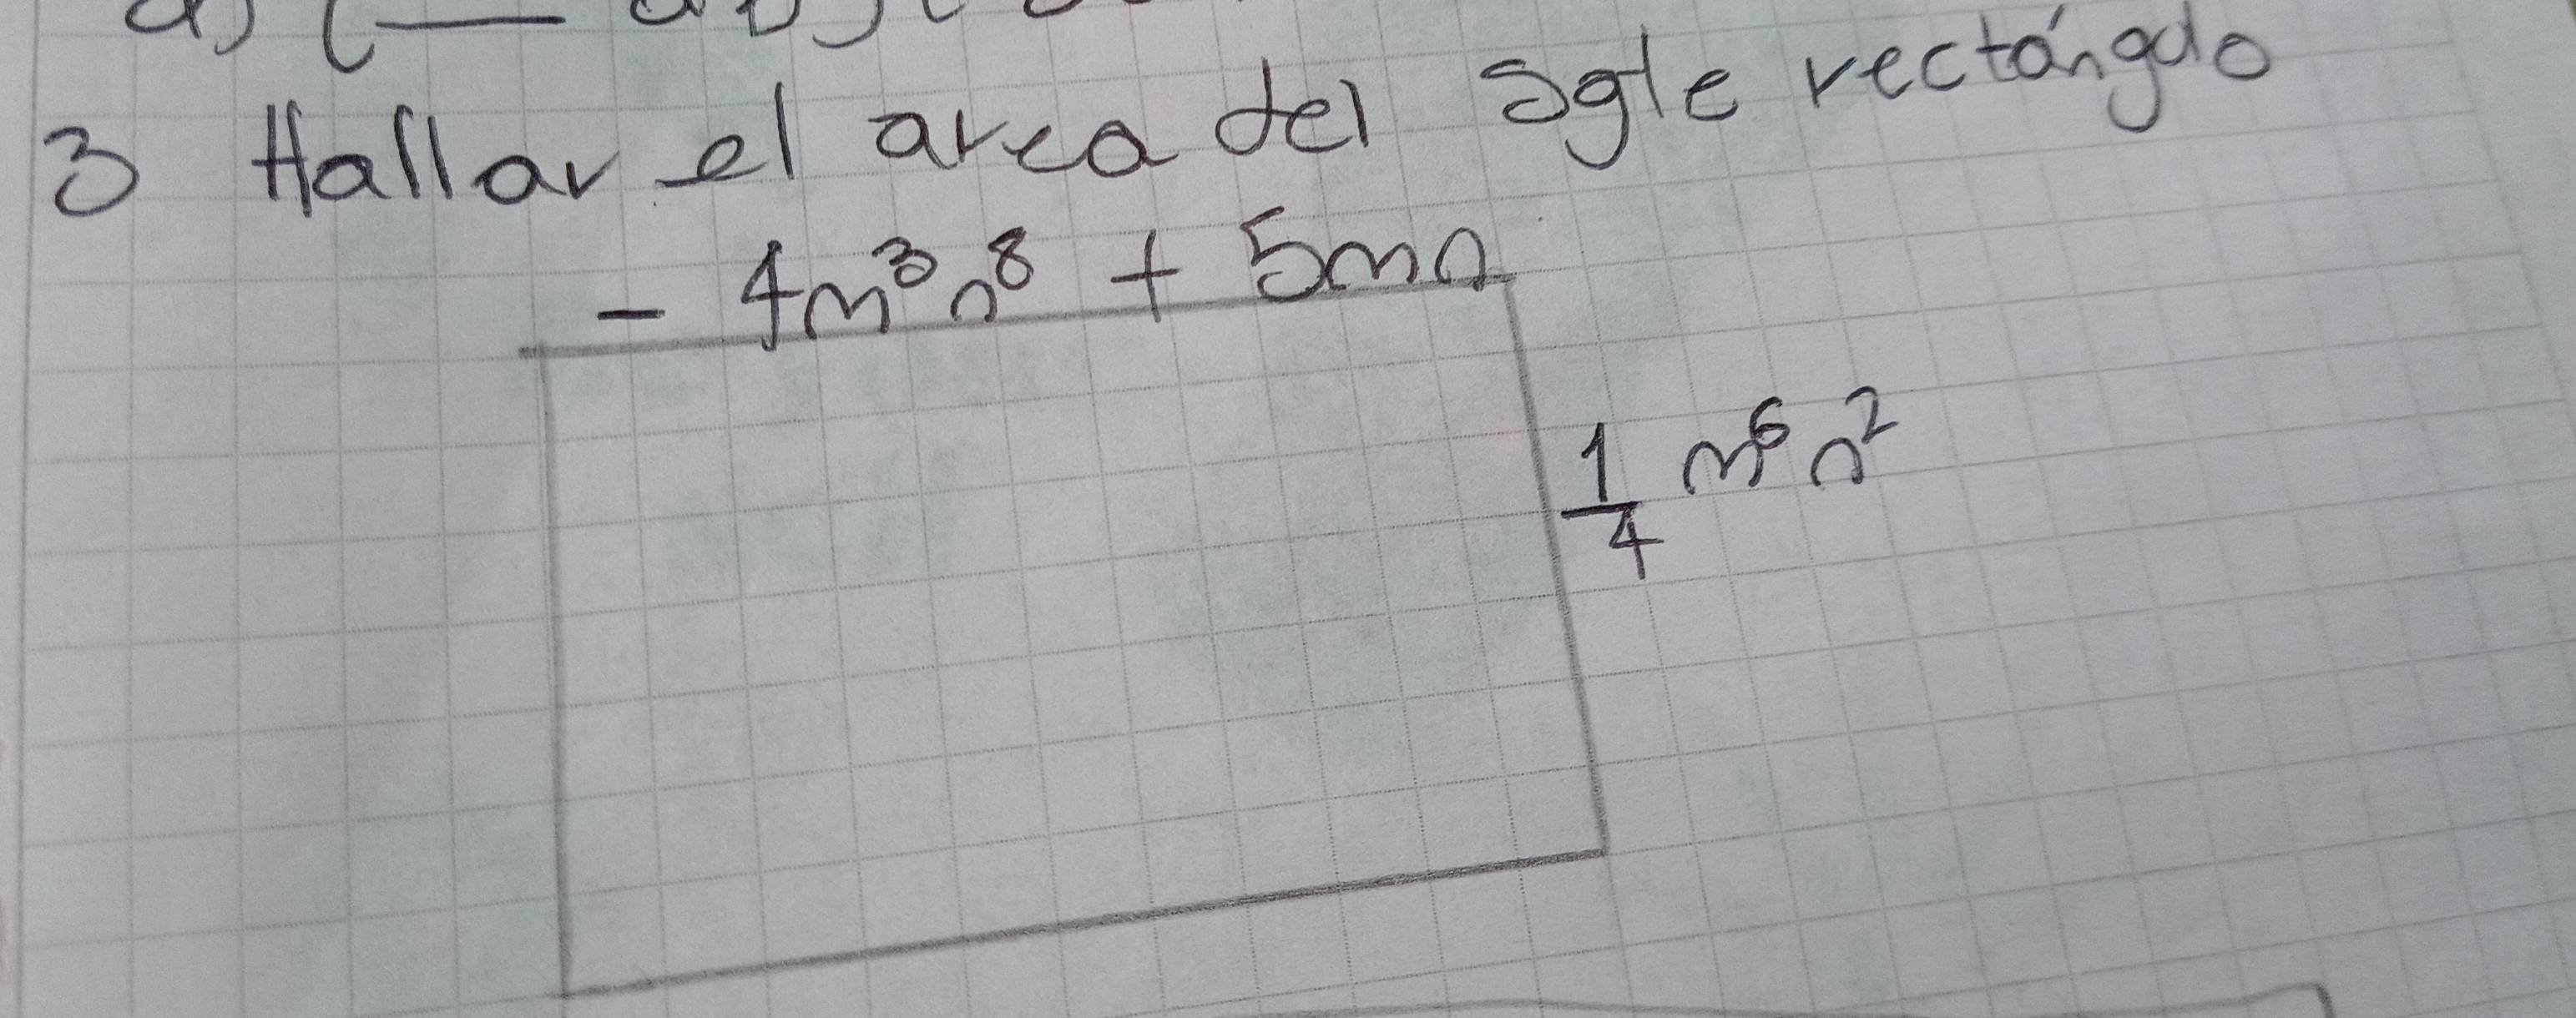 3 Hallar el area del sgte rectángulo
- 4m³n⁸ + 5mn
1/4 m⁶n²